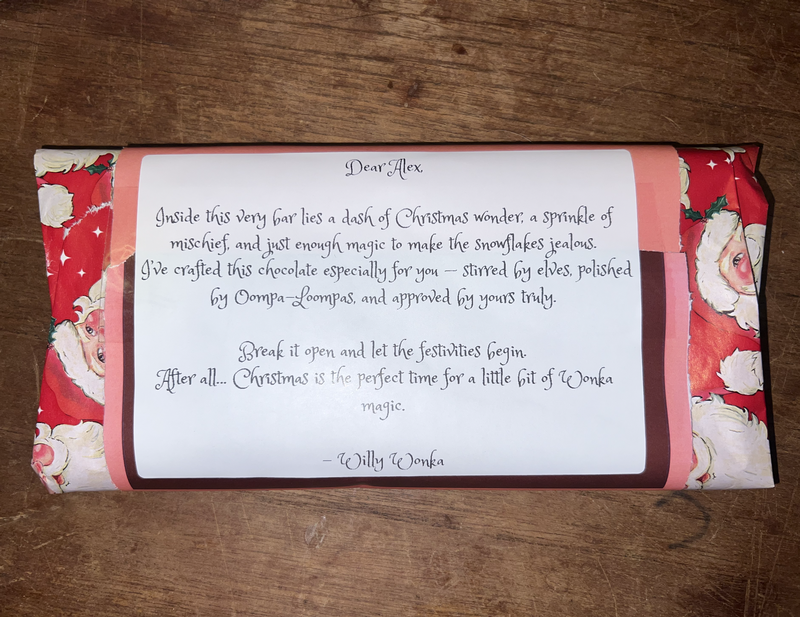 Dear Alex,
Inside this very bar lies a dash of Christmas wonder, a sprinkle of
mischief, and just enough magic to make the snowflakes jealous.
I've crafted this chocolate especially for you – stirred by elves, polished
by Oompa-Loompas, and approved by yours truly.
Break it open and let the festivities begin.
After all... Christmas is the perfect time for a little bit of Wonka
magic.
– Willy Wonka